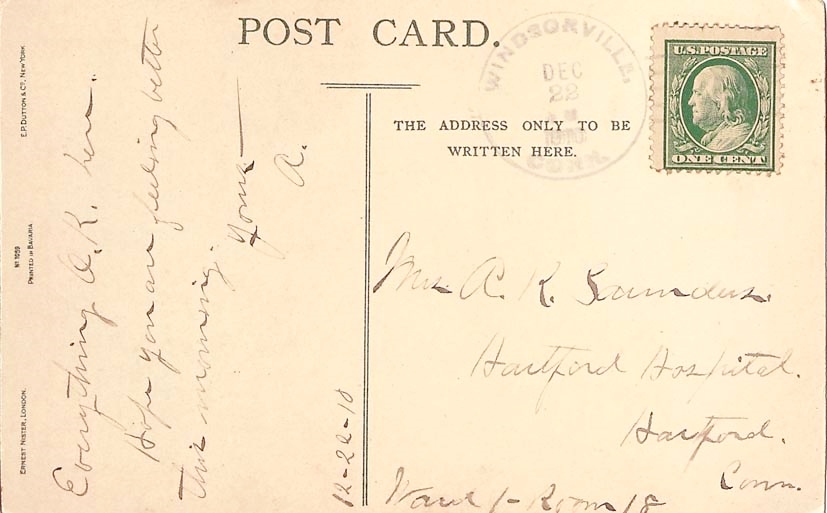 POST CARD.
WINDSORVILLE,
DEC
22
1910
CONN.
U.S. POSTAGE
ONE CENT
THE ADDRESS ONLY TO BE
WRITTEN HERE.
E.P. DUTTON & Co, NEW YORK
No 1059
PRINTED IN BAVARIA
ERNEST NISTER, LONDON.
Everything O.K. here.
Hope you are feeling better
this morning.
Yours —
A.
12-22-10
Mrs A. K. Saunders.
Hartford Hospital.
Hartford.
Conn.
Ward 1 - Room 18